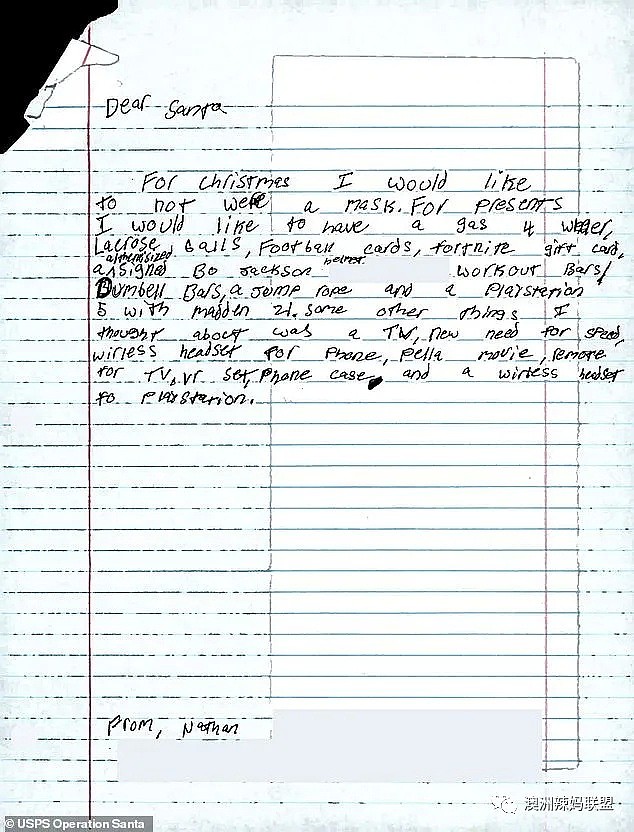 Dear Santa
For christmas I would like
to not were a mask. For presents
I would like to have a gas 4 wheger,
Lacrose balls, Football cards, fortnite gift card,
a authentisized signed Bo Jackson helmet workout Bars,
Dumbell Bars, a Jump rope and a Playstation
5 with madden 21. some other things I
thought about was a TV, new need for speed,
wirless headset for phone, Pella movie, remote
for TV, vr set, Phone case, and a wirless headset
to Playstation.
From, Nathan
澳洲辣妈联盟
© USPS Operation Santa